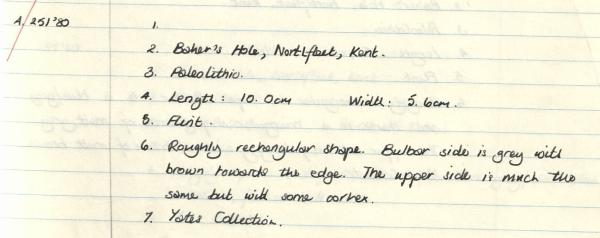 A. 251'80 1.
2. Baker's Hole, Northfleet, Kent.
3. Paleolithic.
4. Length: 10.0cm Width: 5.6cm.
5. Flint.
6. Roughly rectangular shape. Bulbar side is grey with
brown towards the edge. The upper side is much the
same but with some cortex.
7. Yates Collection.